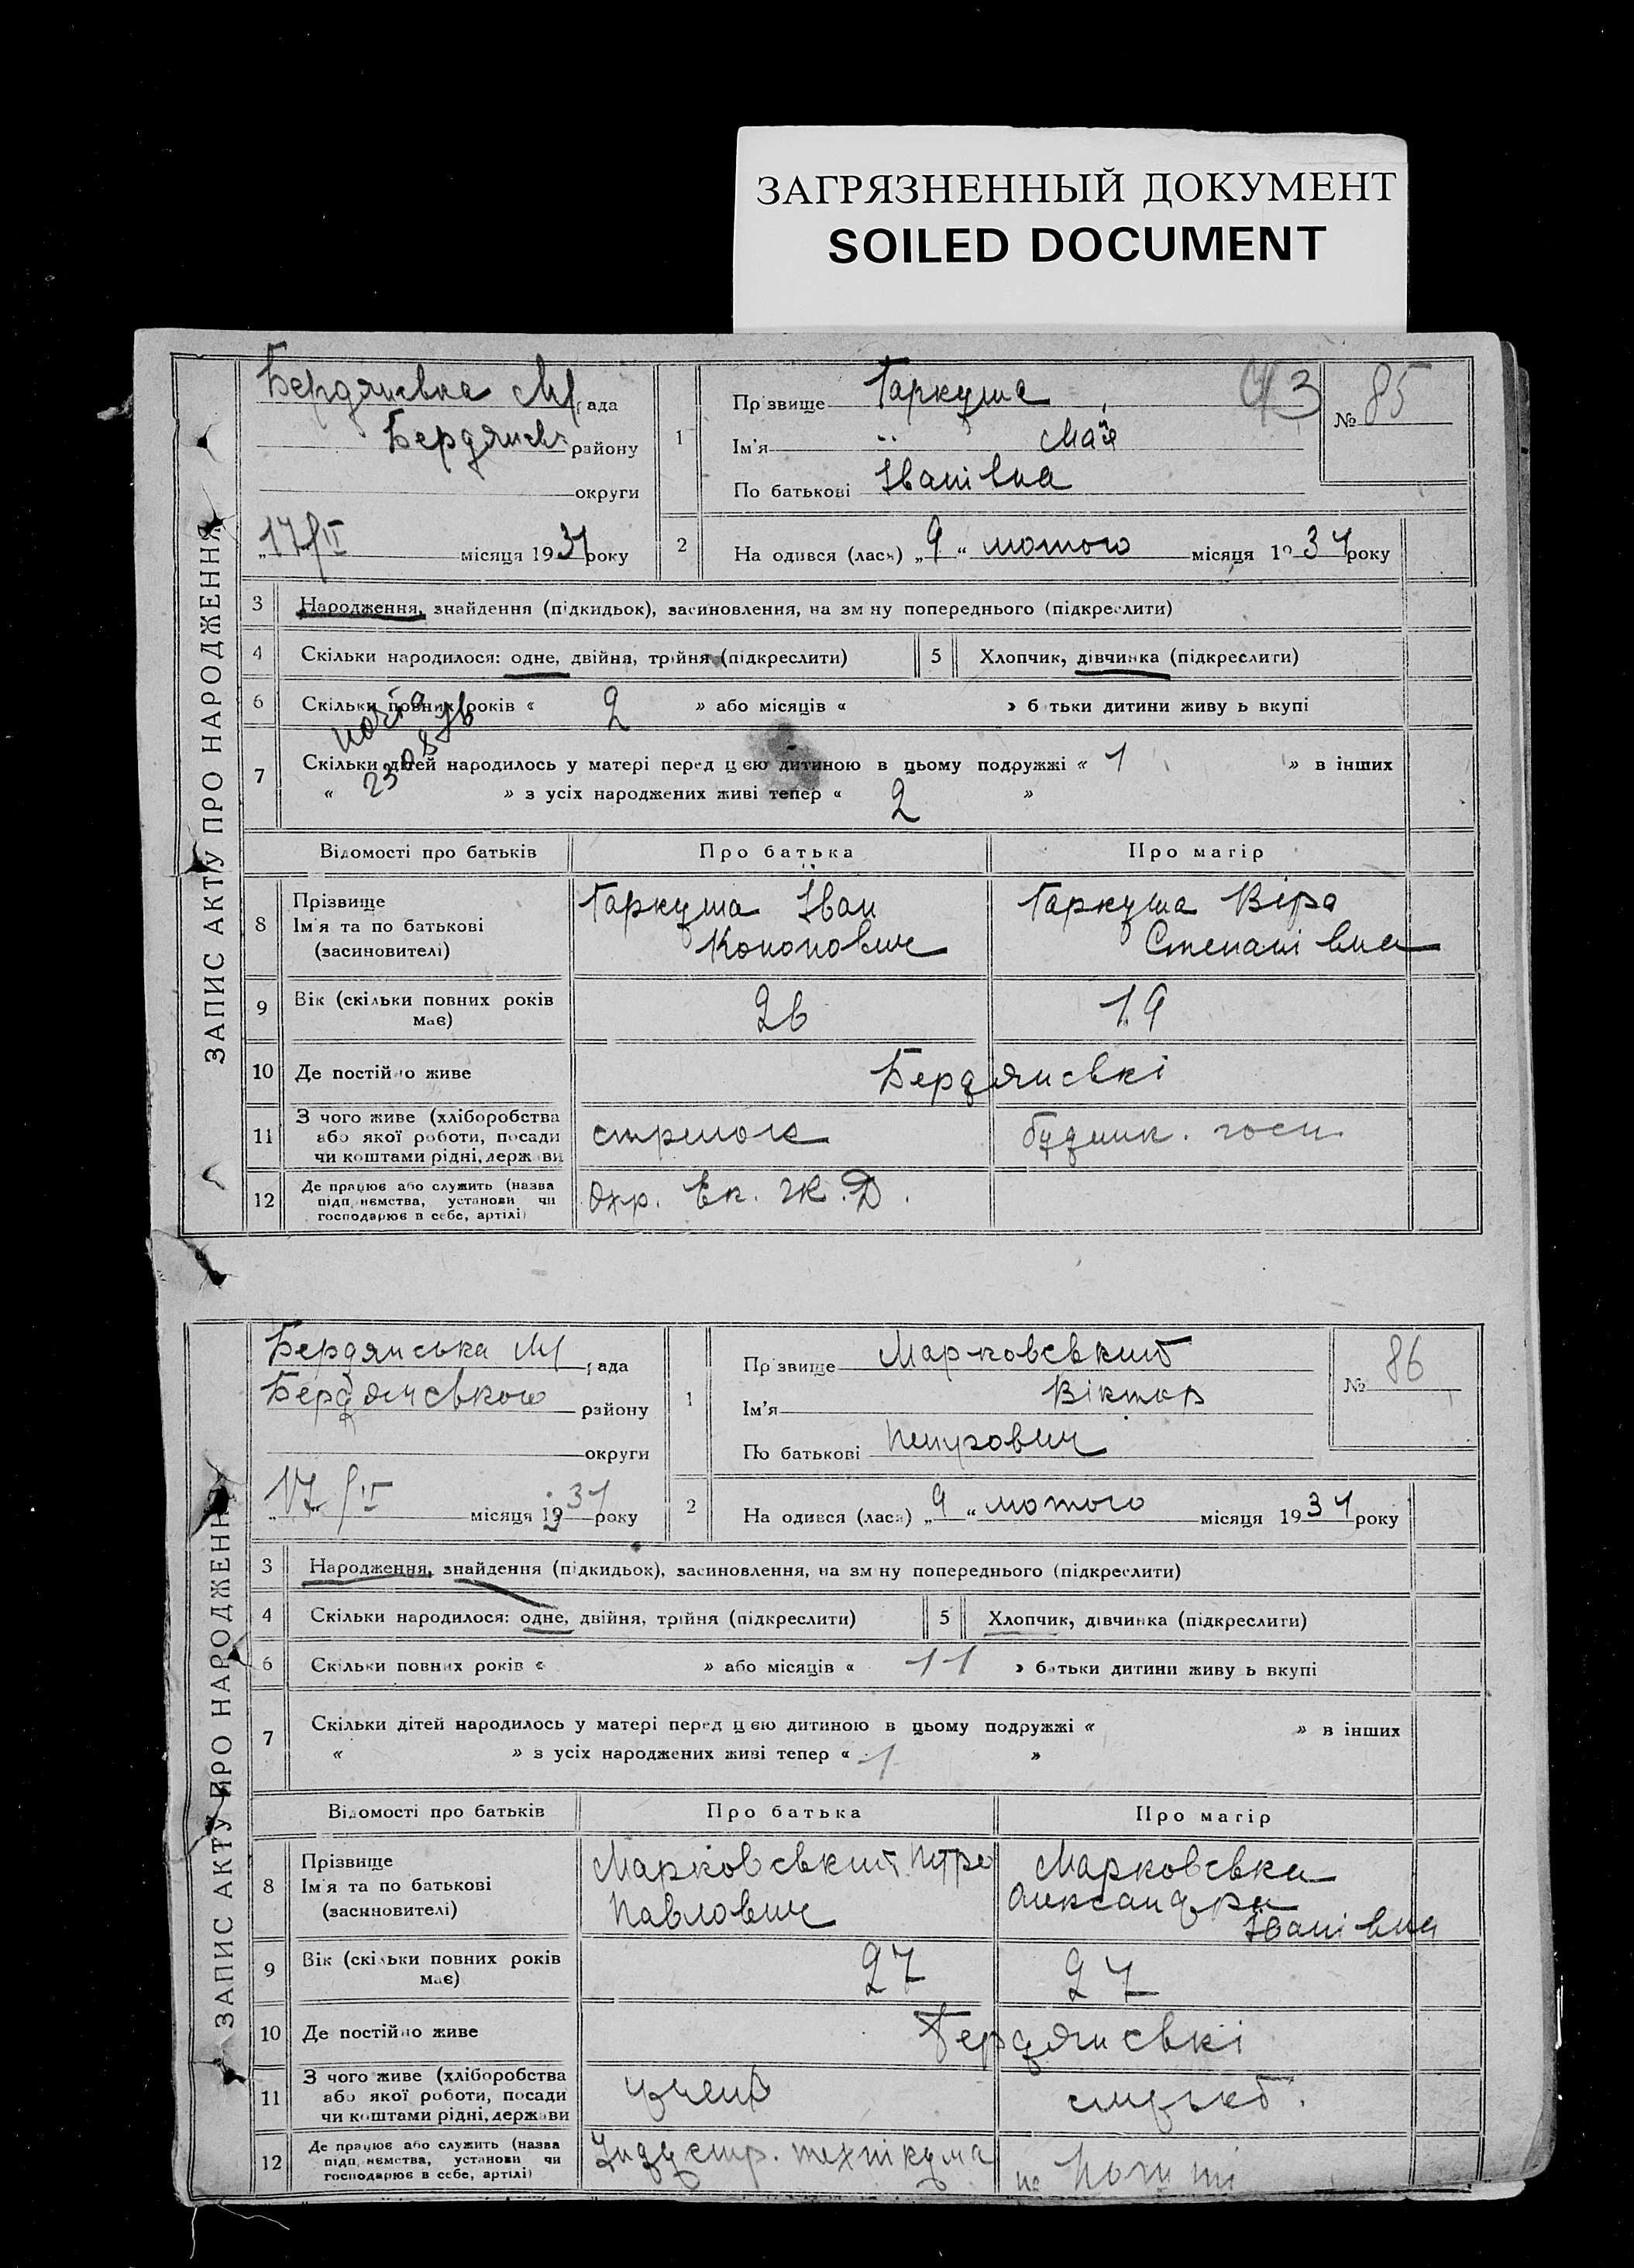 ЗАГРЯЗНЕННЫЙ ДОКУМЕНТ
SOILED DOCUMENT
ЗАПИС АКТУ ПРО НАРОДЖЕННЯ
Бердянська М рада
Бердянськ району
округи
17/II місяця 1931 року
1
Прізвище Гаркуша
Ім'я Мая
По батькові Іванівна
№ 85
2
На одився (лась) „9“ лютого місяця 1931 року
3 Народження, знайдення (підкидьок), засиновлення, на зм ну попереднього (підкреслити)
4 Скільки народилося: одне, двійня, трійня (підкреслити) 5 Хлопчик, дівчинка (підкреслити)
6 Скільки повних років « 2 » або місяців « » б тьки дитини живу ь вкупі
7 Скільки дітей народилось у матері перед цією дитиною в цьому подружжі « 1 » в інших
« » з усіх народжених живі тепер « 2 »
Відомості про батьків Про батька Про матір
8 Прізвище Ім'я та по батькові (засиновителі)
Гаркуша Іван Кононович
Гаркуша Віра Степанівна
9 Вік (скільки повних років має) 26 19
10 Де постійно живе Бердянські
11 З чого живе (хліборобства або якої роботи, посади чи коштами рідні, держави
стрілок
будинк. госп.
12 Де працює або служить (назва підп иємства, установи чи господарює в себе, артілі)
Охр. Ек. Ж.Д.
ЗАПИС АКТУ ПРО НАРОДЖЕННЯ
Бердянська М рада
Бердянського району
округи
17/II місяця 1931 року
1
Прізвище Марковський
Ім'я Віктор
По батькові Петрович
№ 86
2
На одився (лась) „9“ лютого місяця 1931 року
3 Народження, знайдення (підкидьок), засиновлення, на зм ну попереднього (підкреслити)
4 Скільки народилося: одне, двійня, трійня (підкреслити) 5 Хлопчик, дівчинка (підкреслити)
6 Скільки повних років « » або місяців « 11 » батьки дитини живу ь вкупі
7 Скільки дітей народилось у матері перед цією дитиною в цьому подружжі « » в інших
« » з усіх народжених живі тепер « 1 »
Відомості про батьків Про батька Про матір
8 Прізвище Ім'я та по батькові (засиновителі)
Марковський Петро Павлович
Марковська Олександра Іванівна
9 Вік (скільки повних років має) 27 27
10 Де постійно живе Бердянські
11 З чого живе (хліборобства або якої роботи, посади чи коштами рідні, держави
учень
службов.
12 Де працює або служить (назва підп иємства, установи чи господарює в себе, артілі)
Індустр. технікума
на